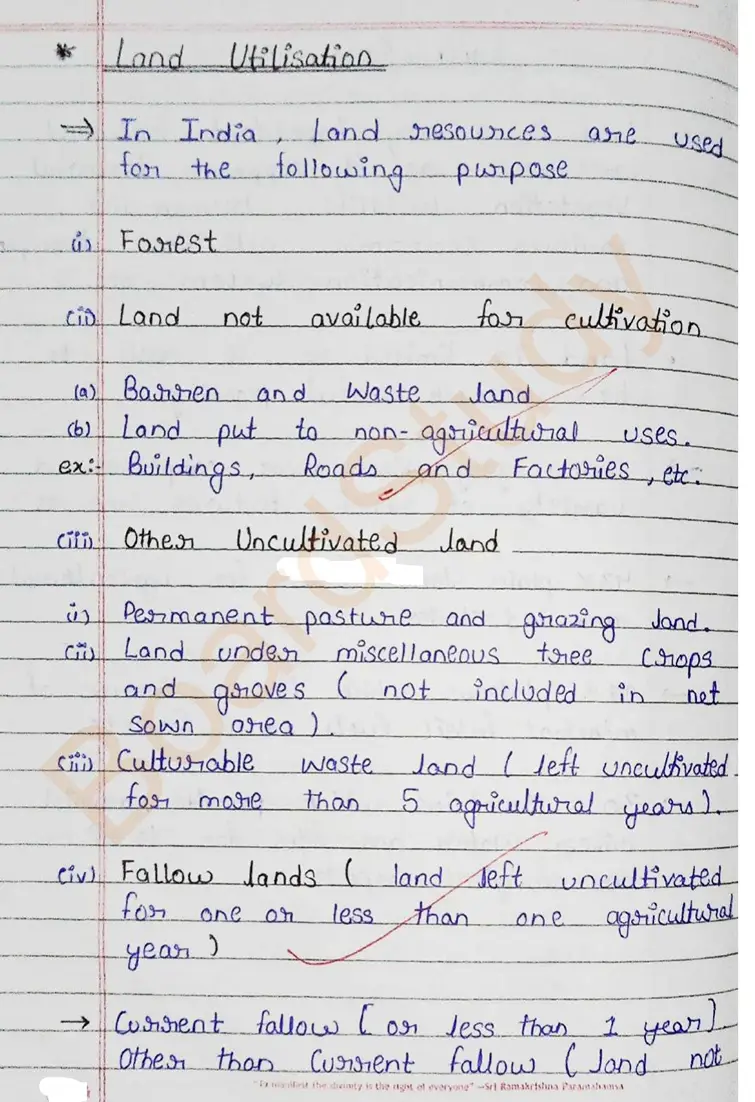 * Land Utilisation
⇒ In India, Land resources are used
for the following purpose
(i) Forest
(ii) Land not available for cultivation
(a) Barren and Waste land
(b) Land put to non-agricultural uses.
ex:- Buildings, Roads and Factories, etc.
(iii) Other Uncultivated land
i) Permanent pasture and grazing land.
(ii) Land under miscellaneous tree crops
and groves (not included in net
sown area)
(iii) Culturable waste land (left uncultivated
for more than 5 agricultural years).
(iv) Fallow lands (land left uncultivated
for one or less than one agricultural
year)
→ Current fallow (or less than 1 year)
Other than Current fallow (land not
"To manifest the divinity is the right of everyone" —Sri Ramakrishna Paramahamsa
BoardStudy